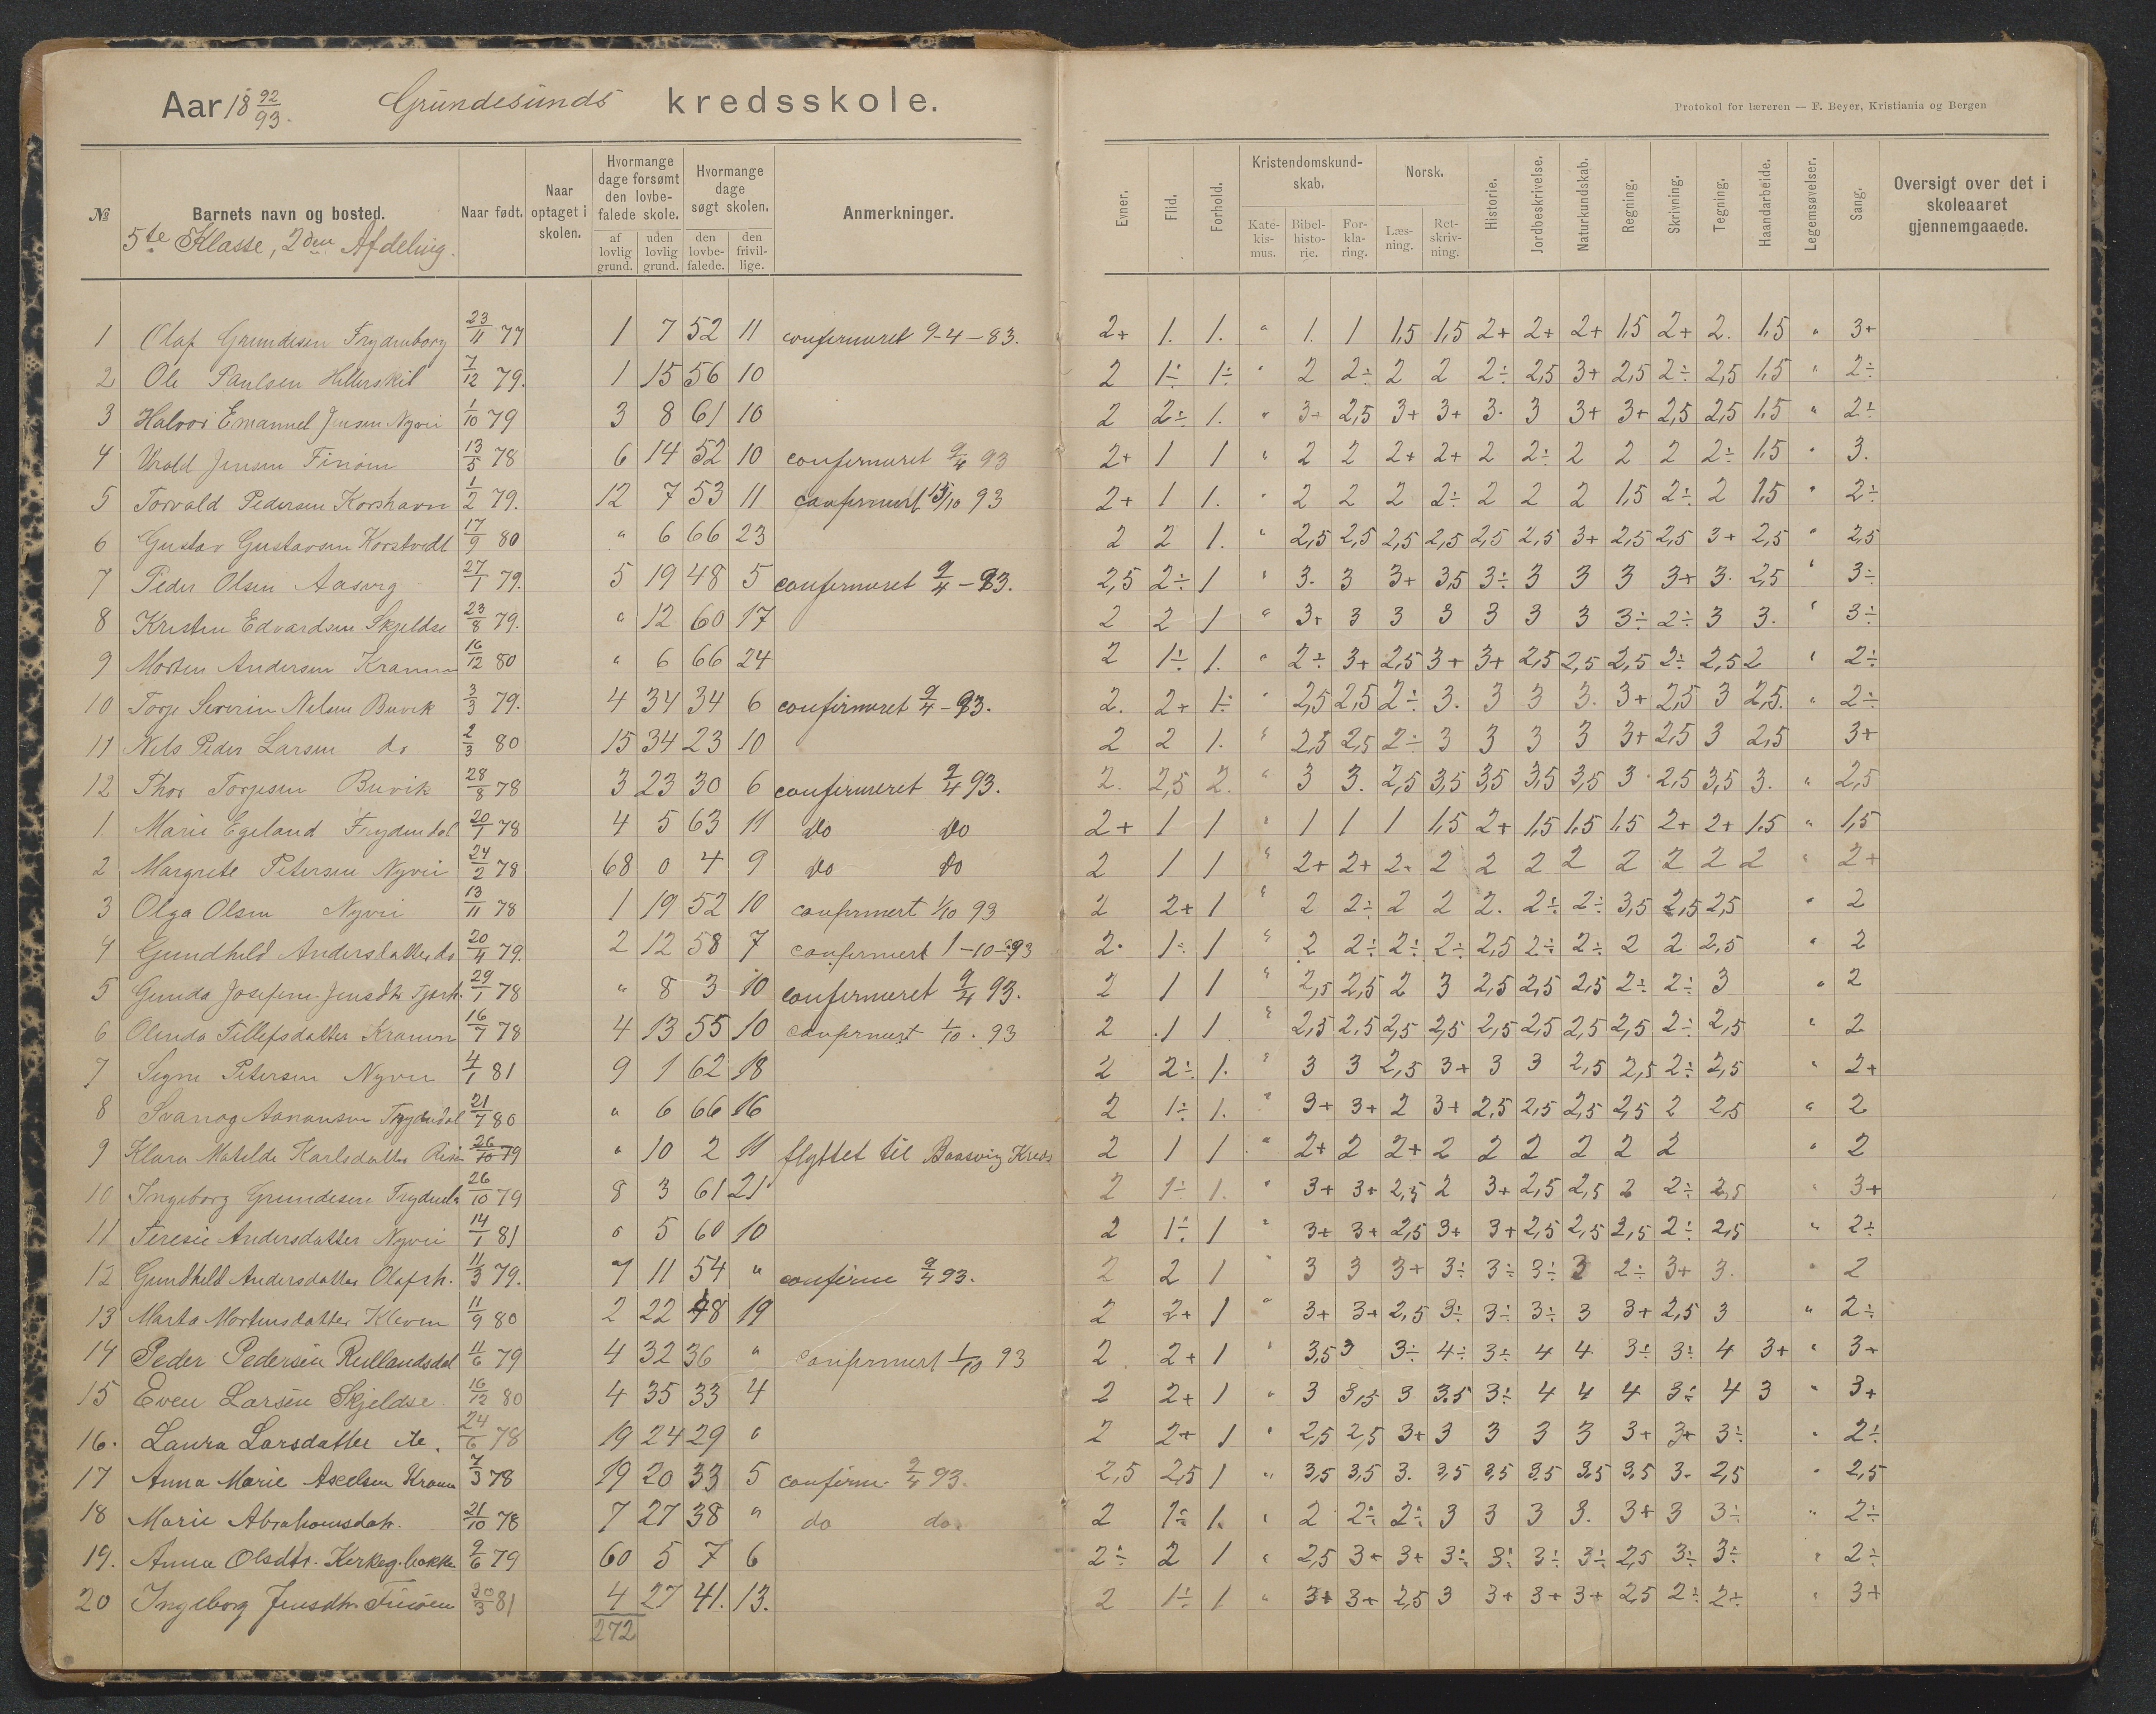 Aar 18 92/93. Grundesunds kredsskole.
Protokol for læreren — F. Beyer, Kristiania og Bergen
№ Barnets navn og bosted. Naar født. Naar optaget i skolen. Hvormange dage forsømt den lovbefalede skole. af lovlig grund. uden lovlig grund. Hvormange dage søgt skolen. den lovbefalede. den frivillige. Anmerkninger. Evner. Flid. Forhold. Kristendomskundskab. Katekismus. Bibelhistorie. Forklaring. Norsk. Læsning. Retskrivning. Historie. Jordbeskrivelse. Naturkundskab. Regning. Skrivning. Tegning. Haandarbeide. Legemsøvelser. Sang. Oversigt over det i skoleaaret gjennemgaaede.
5te Klasse, 2den Afdeling.
1 Olaf Grundesen Frydenborg 23/11 77 1 7 52 11 confirmeret 9-4-83. 2+ 1. 1. " 1. 1 1,5 1,5 2+ 2+ 2+ 1,5 2+ 2. 1,5 " 3+
2 Ole Paulsen 7/12 79. 1 15 56 10 2 1÷ 1÷ " 2 2÷ 2 2 2÷ 2,5 3+ 2,5 2÷ 2,5 1,5 " 2÷
3 Halvor Emanuel Jensen Nyvei 1/10 79 3 8 61 10 2 2÷ 1. " 3+ 2,5 3+ 3+ 3. 3 3+ 3+ 2,5 2,5 1,5 " 2÷
4 Jensen Finöen 13/5 78 6 14 52 10 confirmeret 9/4 93 2+ 1 1 " 2 2 2+ 2+ 2 2÷ 2 2 2 2÷ 1,5 " 3.
5 Torvald Pedersen Korshavn 1/2 79. 12 7 53 11 confirmert 15/10 93 2+ 1 1. " 2 2 2 2÷ 2 2 2 1,5 2÷ 2 1,5 " 2÷
6 Gustav Gustavsen Korstvedt 17/9 80 " 6 66 23 2 2 1. " 2,5 2,5 2,5 2,5 2,5 2,5 3+ 2,5 2,5 3+ 2,5 " 2,5
7 Peder Olsen Aasvig 27/1 79. 5 19 48 5 confirmeret 9/4-93. 2,5 2÷ 1 " 3. 3 3+ 3,5 3÷ 3 3 3 3+ 3. 2,5 " 3÷
8 Kristen Edvardsen Skjeldsø 23/8 79. " 12 60 17 2 2 1 " 3+ 3 3 3 3 3 3 3÷ 2÷ 3 3. " 3÷
9 Morten Andersen 16/12 80 " 6 66 24 2 1÷ 1. " 2÷ 3+ 2,5 3+ 3+ 2,5 2,5 2,5 2÷ 2,5 2 " 2÷
10 Torje Severin Nelsen Buvik 3/3 79. 4 34 34 6 confirmeret 9/4-93. 2. 2+ 1÷ " 2,5 2,5 2÷ 3. 3 3 3. 3+ 2,5 3 2,5. " 2÷
11 Nils Peder Larsen do 2/3 80 15 34 23 10 2 2 1. " 2,5 2,5 2÷ 3 3 3 3 3+ 2,5 3 2,5 3+
12 Thor Torjesen Buvik 28/8 78 3 23 30 6 confirmeret 9/4 93. 2. 2,5 2. " 3 3. 2,5 3,5 3,5 3,5 3,5 3 2,5 3,5 3. " 2,5
1. Marie Egeland Frydendal 20/1 78 4 5 63 11 do do 2+ 1 1 " 1 1 1 1,5 2+ 1,5 1,5 1,5 2+ 2+ 1,5 " 1,5
2 Margrete Petersen Nyvei 24/2 78 68 0 4 9 do do 2 1 1 " 2+ 2+ 2. 2 2 2 2 2 2 2 2 " 2+
3 Olga Olsen Nyvei 13/11 78 1 19 52 10 confirmert 1/10 93 2 2+ 1 " 2 2÷ 2 2 2. 2÷ 2÷ 3,5 2,5 2,5 " 2
4 Gundhild Andersdatter do 20/4 79. 2 12 58 7 confirmert 1-10-93 2. 1÷ 1 " 2 2÷ 2÷ 2÷ 2,5 2÷ 2÷ 2 2 2,5 " 2
5 Gunda Josefine Jensdtr 29/1 78 " 8 3 10 confirmeret 9/4 93. 2 1 1 " 2,5 2,5 2 3 2,5 2,5 2,5 2÷ 2÷ 3 " 2
6 Olenda Tellefsdatter 16/7 78 4 13 55 10 confirmert 1/10. 93 2 .1 1 " 2,5 2,5 2,5 2,5 2,5 2,5 2,5 2,5 2÷ 2,5 " 2
7 Signe Petersen Nyvei 4/1 81 9 1 62 18 2 2÷ 1. " 3 3 2,5 3+ 3 3 2,5 2,5 2÷ 2,5 " 2+
8 Aanonsen Frydendal 21/7 80 " 6 66 16 2 1÷ 1. " 3+ 3+ 2 3+ 2,5 2,5 2,5 2,5 2 2,5 " 2
9 Klara Matilde Karlsdatter 26/10 79 " 10 2 11 flyttet til Baasvig Kreds 2 1 1 " 2+ 2 2+ 2 2 2 2 2 2 " 2
10 Ingeborg Grundesen 26/10 79 8 3 61 21 2 1÷ 1. " 3+ 3+ 2,5 2 3+ 2,5 2,5 2 2÷ 2,5 " 3+
11 Teresie Andersdatter Nyvei 14/1 81 " 5 60 10 2 1÷ 1 " 3+ 3+ 2,5 3+ 3+ 2,5 2,5 2,5 2÷ 2,5 " 2÷
12 Gundhild Andersdatter Olafsh. 11/3 79. 7 11 54 " confirm 9/4 93. 2 2 1 " 3 3 3+ 3÷ 3÷ 3÷ 3 2÷ 3+ 3. " 2
13 Marta Mortensdatter Kleven 11/9 80 2 22 48 19 2 2+ 1 " 3+ 3+ 2,5 3÷ 3÷ 3÷ 3 3+ 2,5 3 " 2÷
14 Peder Pedersen Rullandsdal 11/6 79 4 32 36 " confirmert 1/10 93 2 2+ 1 " 3,5 3 3÷ 4÷ 3÷ 4 4 3÷ 3÷ 4 3+ " 3+
15 Even Larsen Skjeldsø. 16/12 80 4 35 33 4 2 2+ 1 " 3 3,5 3 3,5 3÷ 4 4 4 3÷ 4 3 " 3+
16. Laura Larsdatter 24/6 78 19 24 29 " 2 2+ 1 " 2,5 2,5 3+ 3 3 3 3 3+ 3+ 3÷ " 2÷
17 Anna Marie Axelsen 7/3 78 19 20 33 5 confirm 9/4 93. 2,5 2,5 1 " 3,5 3,5 3. 3,5 3,5 3,5 3,5 3,5 3. 2,5 " 2,5
18 Marie Abrahamsdatr. 21/10 78 7 27 38 " do do. 2 1÷ 1. " 2 2÷ 2÷ 3 3 3 3. 3+ 3 3÷ " 2÷
19. Anna Olsdtr. 9/6 79 60 5 7 6 2÷ 2 1 " 2,5 3+ 3+ 3÷ 3÷ 3÷ 3÷ 2,5 3÷ 3÷ " 2÷
20 Ingeborg Jensdtr. Finöen 30/3 81 4 27 41. 13. 2 1÷ 1. " 3+ 3+ 2,5 3 3+ 3+ 3+ 2,5 2÷ 2÷ " 3+
272